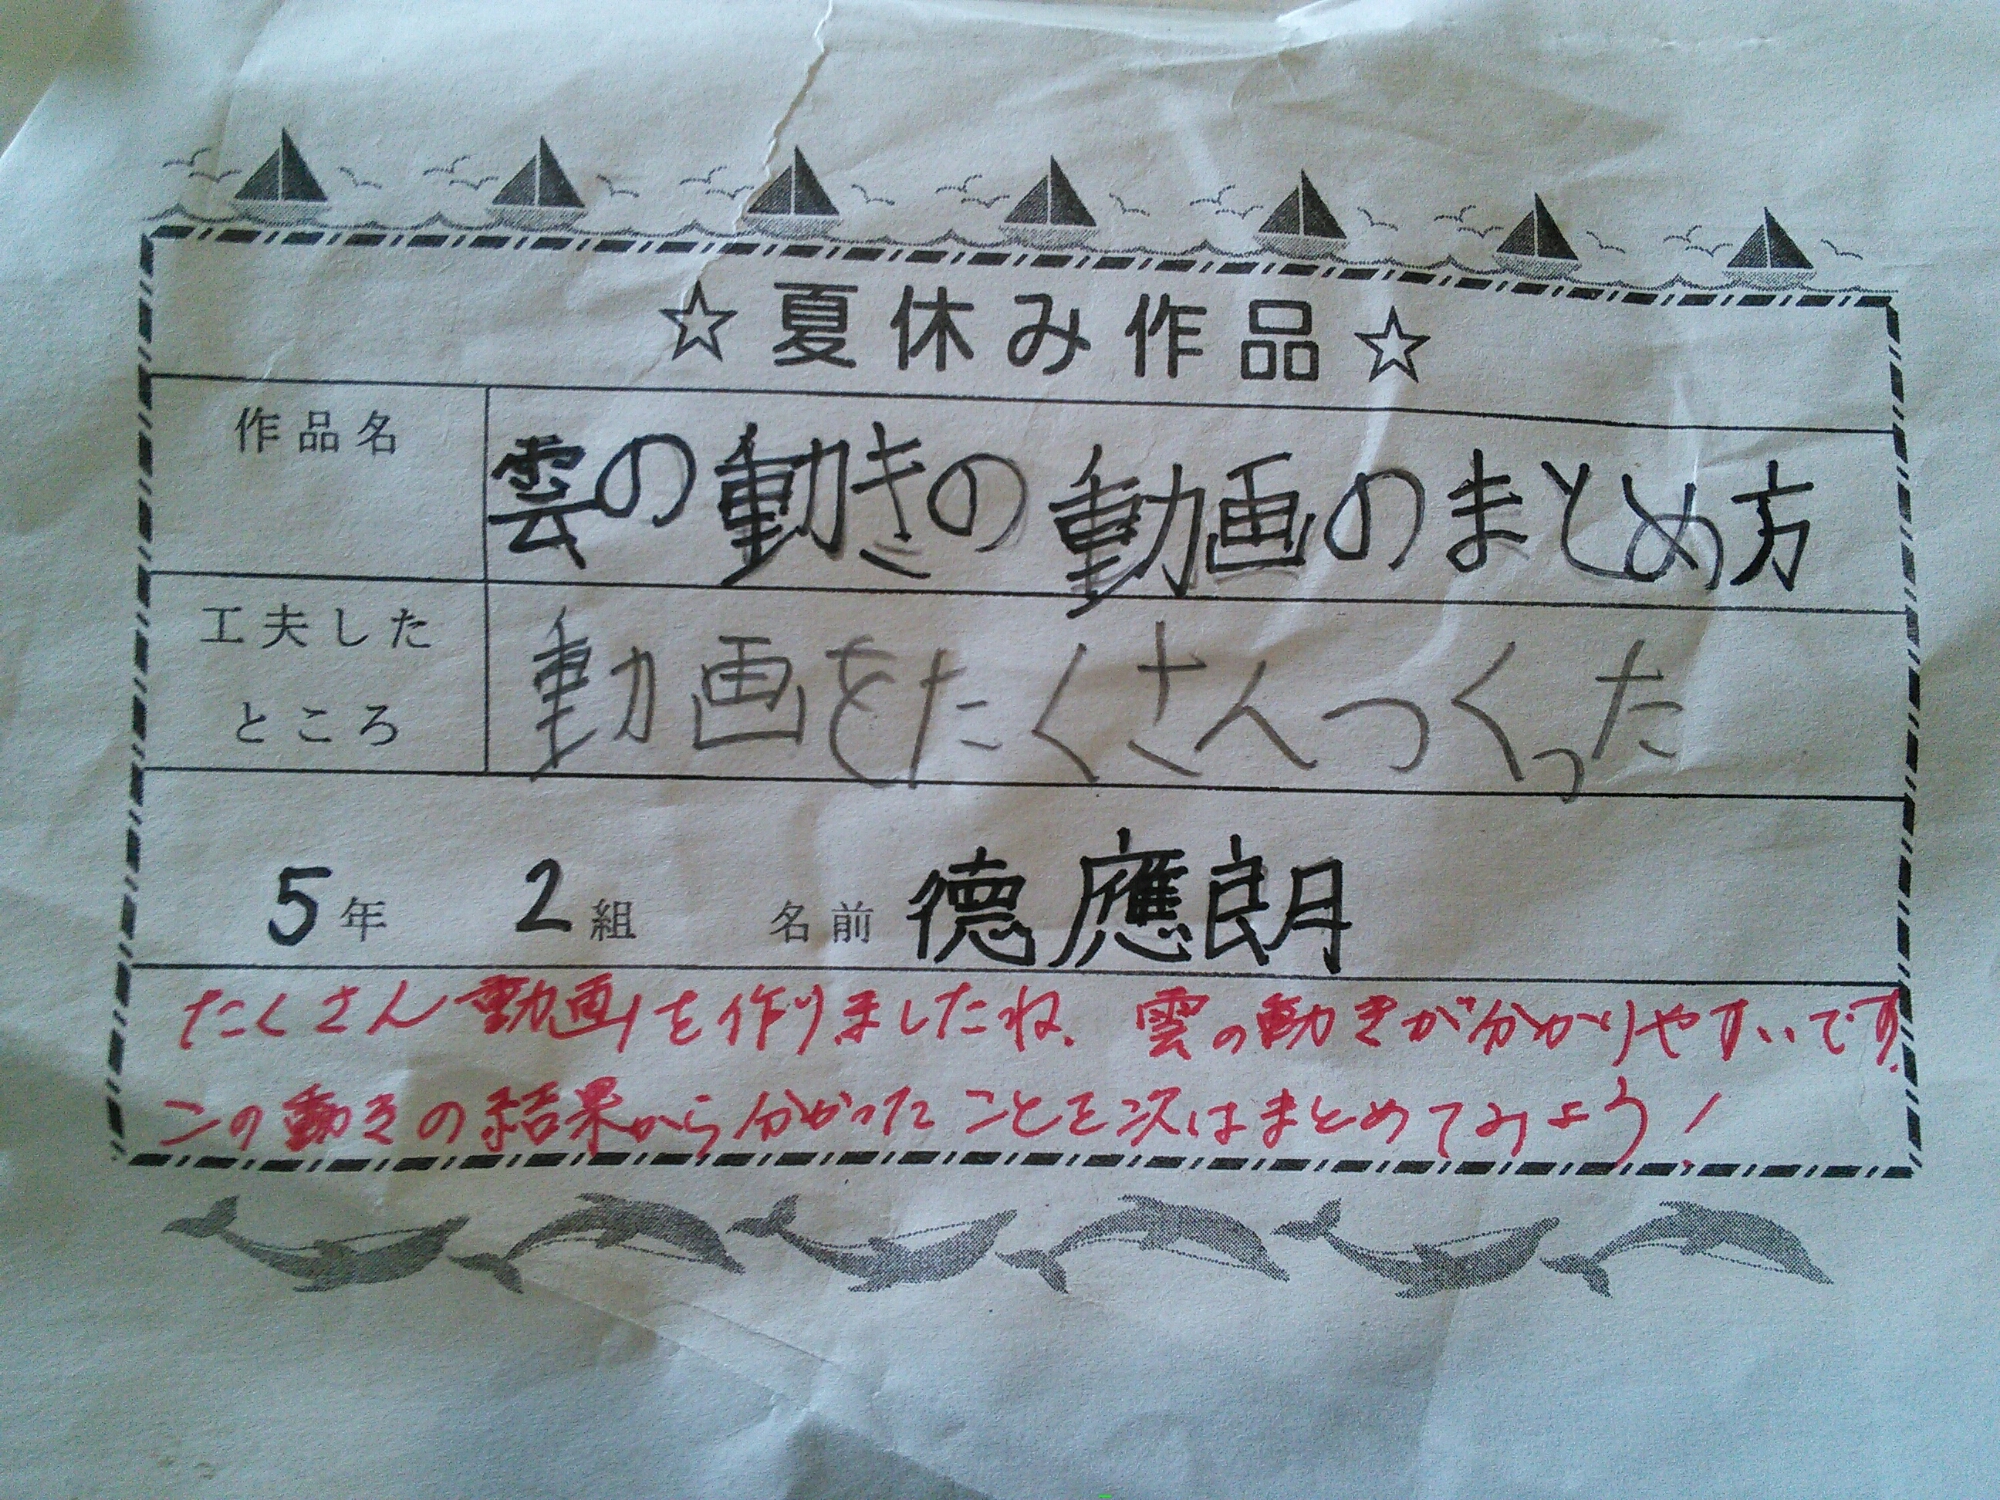 ☆夏休み作品☆
作品名 雲の動きの動画のまとめ方
工夫したところ 動画をたくさんつくった
5年 2組 名前 德應朗
たくさん動画を作りましたね。雲の動きが分かりやすいです。
この動きの結果から分かったことを次はまとめてみよう!